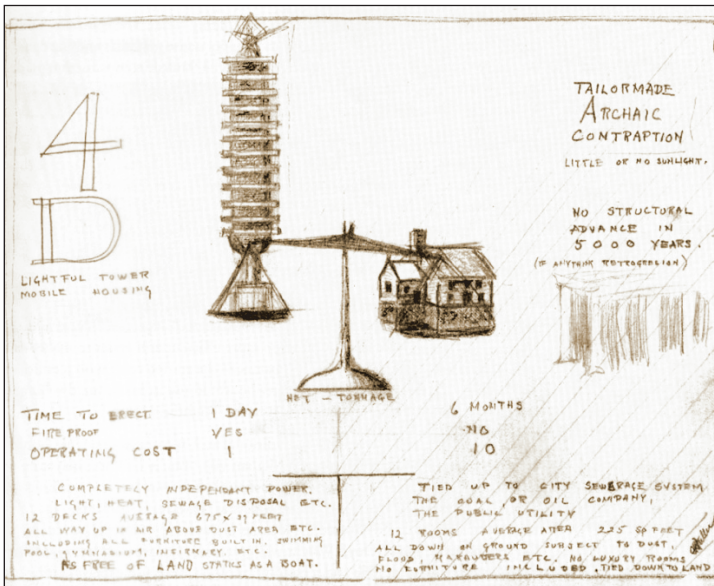 4
D
LIGHTFUL TOWER
MOBILE HOUSING
TAILORMADE
ARCHAIC
CONTRAPTION
LITTLE OR NO SUNLIGHT.
NO STRUCTURAL
ADVANCE IN
5000 YEARS.
(IF ANYTHING RETROGRESSION)
NET - TONNAGE
TIME TO ERECT 1 DAY 6 MONTHS
FIREPROOF YES NO
OPERATING COST 1 10
COMPLETELY INDEPENDANT POWER,
LIGHT, HEAT, SEWAGE DISPOSAL ETC.
12 DECKS AVERAGE 675 FEET
ALL WAY UP IN AIR ABOVE DUST AREA ETC.
INCLUDING ALL FURNITURE BUILT IN, SWIMMING
POOL, GYMNASIUM, INFIRMARY, ETC.
AS FREE OF LAND STATICS AS A BOAT.
TIED UP TO CITY SEWERAGE SYSTEM
THE COAL OR OIL COMPANY,
THE PUBLIC UTILITY
12 ROOMS AVERAGE AREA 225 SQ FEET
ALL DOWN ON GROUND SUBJECT TO DUST,
FLOOD, MARAUDERS ETC. NO LUXURY ROOMS
NO FURNITURE INCLUDED. TIED DOWN TO LAND